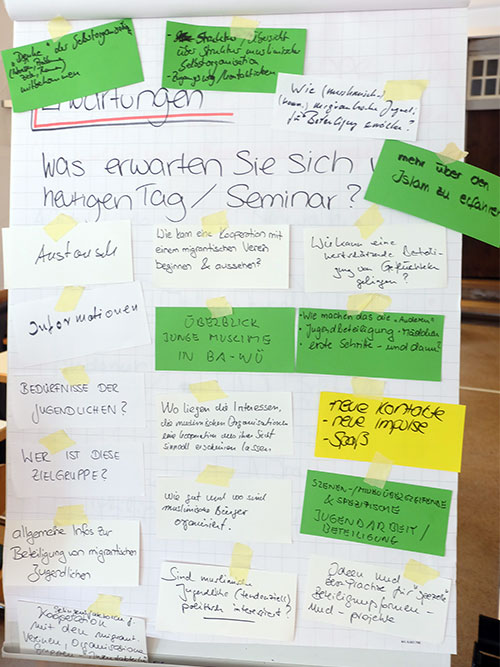 "Denke" der Selbstorganisation
mitbekommen
Struktur/Übersicht
über Struktur muslimischer
Selbstorganisation
- Zugangsweg/Kontaktieren
Wie (muslimische)
migrantische Jugendl.
für Beteiligung
Erwartungen
Was erwarten Sie sich v
heutigen Tag / Seminar?
mehr über den
Islam zu erfahren
Austausch
Wie kann eine Kooperation mit
einem migrantischen Verein
beginnen & aussehen?
Wie kann eine
Beteili-
gung von Geflüchteten
gelingen?
Informationen
ÜBERBLICK
JUNGE MUSLIME
IN BA-WÜ
- Wie machen das die "Anderen"
- Jugendbeteiligung - Mädchen
- erste Schritte - und dann?
BEDÜRFNISSE DER
JUGENDLICHEN?
Wo liegen die Interessen,
die muslimischen Organisationen
eine Kooperation aus ihrer Sicht
sinnvoll erscheinen lassen
- neue Kontakte
- neue Impulse
- Spaß
WER IST DIESE
ZIELGRUPPE?
Wie gut und wo sind
muslimische Bürger
organisiert.
SZENEN-/MILIEUÜBERGREIFENDE
& SPEZIFISCHE
JUGENDARBEIT/
BETEILIGUNG
allgemeine Infos zur
Beteiligung von migrantischen
Jugendlichen
Sind muslimische
Jugendliche (tendenziell)
politisch interessiert?
Ideen und
für "spezielle"
Beteiligungsformen -
und - projekte
Kooperation
mit den migrant.
Vereinen, Organisationen